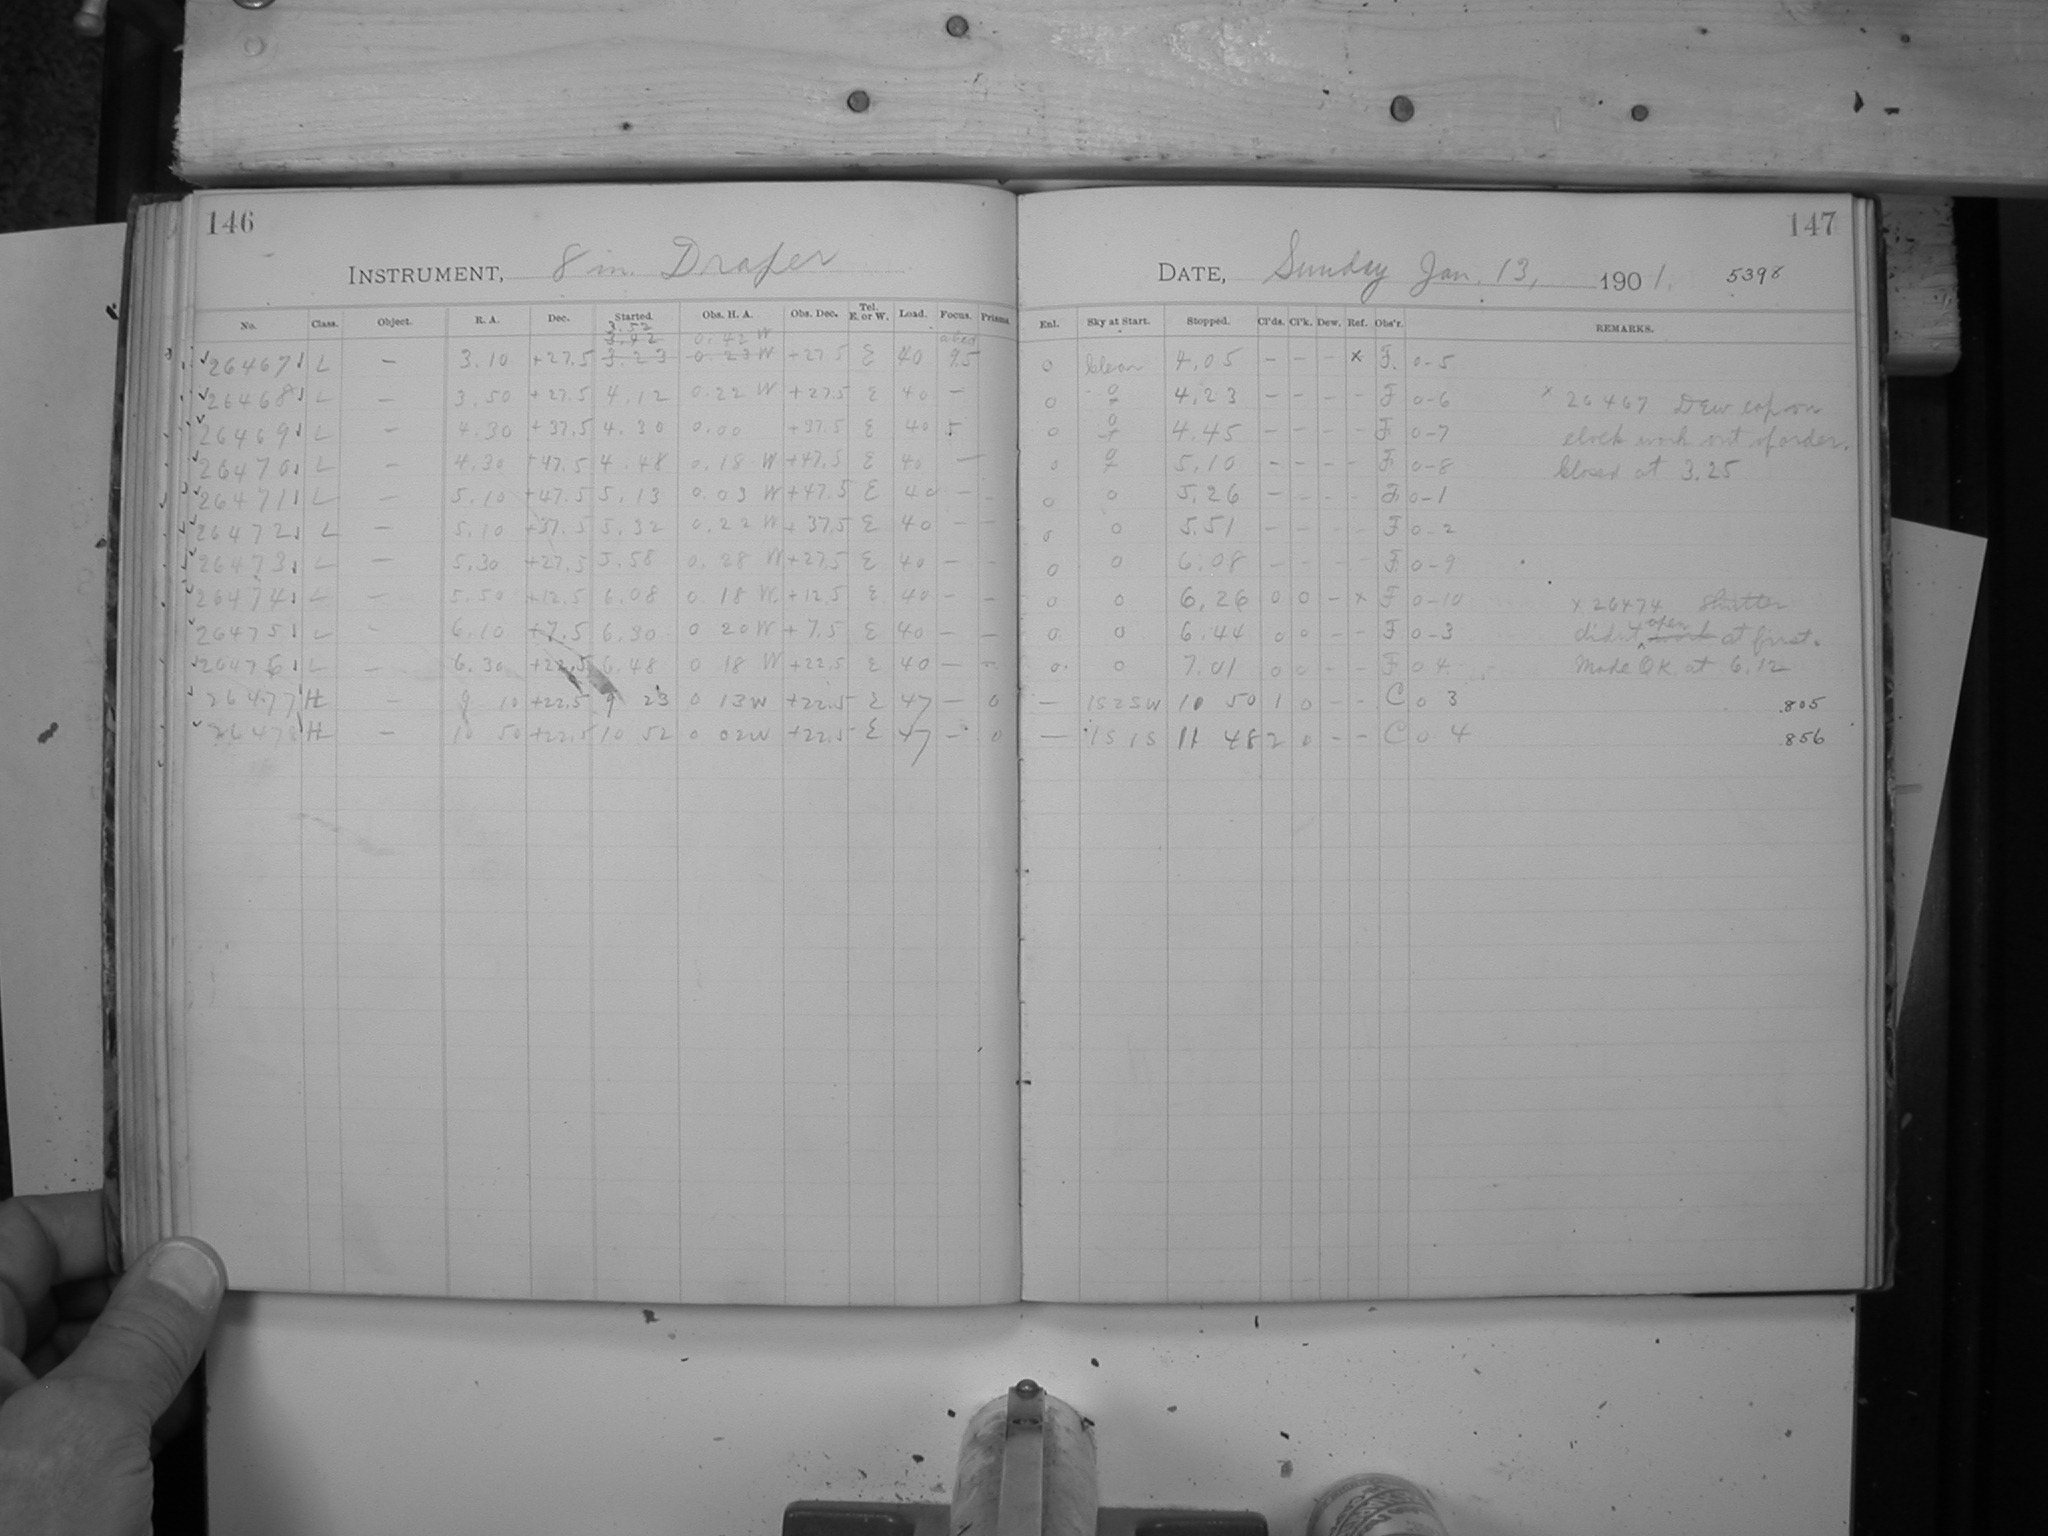 146
INSTRUMENT, 8 in. Draper
No. Class. Object. R. A. Dec. Started. Obs. H. A. Obs. Dec. Tel. E. or W. Load. Focus. Prisms
3.52
3.42 0.42 W
26467 L — 3.10 +27.5 3.23 0.23 W +27.5 E 40 95
26468 L — 3.50 +27.5 4.12 0.22 W +27.5 E 40 —
26469 L — 4.30 +37.5 4.30 0.00 +37.5 E 40 5
26470 L — 4.30 +47.5 4.48 0.18 W +47.5 E 40 —
26471 L — 5.10 +47.5 5.13 0.03 W +47.5 E 40 — —
26472 L — 5.10 +37.5 5.32 0.22 W +37.5 E 40 — —
26473 L — 5.30 +27.5 5.58 0.28 W +27.5 E 40 — —
26474 L — 5.50 +12.5 6.08 0 18 W. +12.5 E 40 — —
26475 L — 6.10 +7.5 6.30 0 20 W +7.5 E 40 — —
26476 L — 6.30 +22.5 6.48 0 18 W +22.5 E 40 — —
26477 H — 9 10 +22.5 9 23 0 13 W +22.5 E 47 — 0
26478 H — 10 50 +22.5 10 52 0 02 W +22.5 E 47 — 0
147
DATE, Sunday Jan. 13, 1901. 5398
Enl. Sky at Start. Stopped. Cl'ds. Cl'k. Dew. Ref. Obs'r. REMARKS.
0 Clear 4.05 — — — x F. 0-5
0 4.23 — — — — F 0-6 x 26467 Dew cap on
0 4.45 — — — — F 0-7 clock work out of order.
0 5.10 — — — — F 0-8 Closed at 3.25
0 0 5.26 — — — — F 0-1
0 0 5.51 — — — — F 0-2
0 0 6.08 — — — — F 0-9
0 0 6.26 0 0 — x F 0-10 x 26474 Shutter
0 0 6.44 0 0 — — F 0-3 didn't open work at first.
0 0 7.01 0 0 — — F 0 4 Made OK at 6.12
— 1S2SW 10 50 1 0 — — C 0 3 805
— 1S 1S 11 48 2 0 — — C 0 4 856